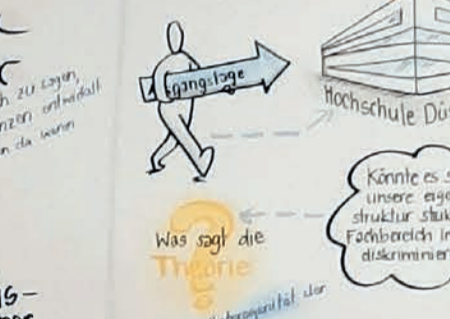 zu sagen,
da waren
gangslage
Hochschule Dü
Könnte es s
unsere eige
struktur stuk
Fachbereich in
diskriminier
Was sagt die
Theorie
der